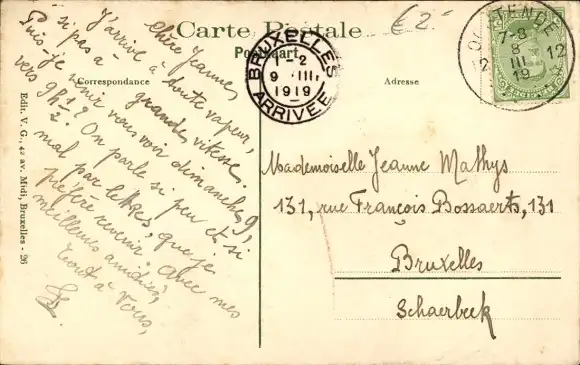 Carte Postale
Postkaart
Correspondance
Adresse
€ 2.-
Chère Jeanne,
J'arrive à toute vapeur,
si pas à grande vitesse.
Puis-je venir vous voir dimanche 9,
vers 9h 1/2? On parle si peu et si
mal par lettres, que je
préfère revenir. Avec mes
meilleures amitiés,
tout à Vous,
Mademoiselle Jeanne Mathys
131, rue François Bossaerts, 131
Bruxelles
Schaerbeek
BRUXELLES
2
9 III
1919
ARRIVEE
OOSTENDE
7-8
8
12 III 12
19
Edit. V. G., 42 av. Midi, Bruxelles - 26